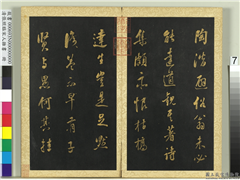 陶潛避俗翁未必
能達道觀其著詩
集頗亦恨枯槁
達生豈是足默
識蓋不早有子
賢與愚何其掛
7